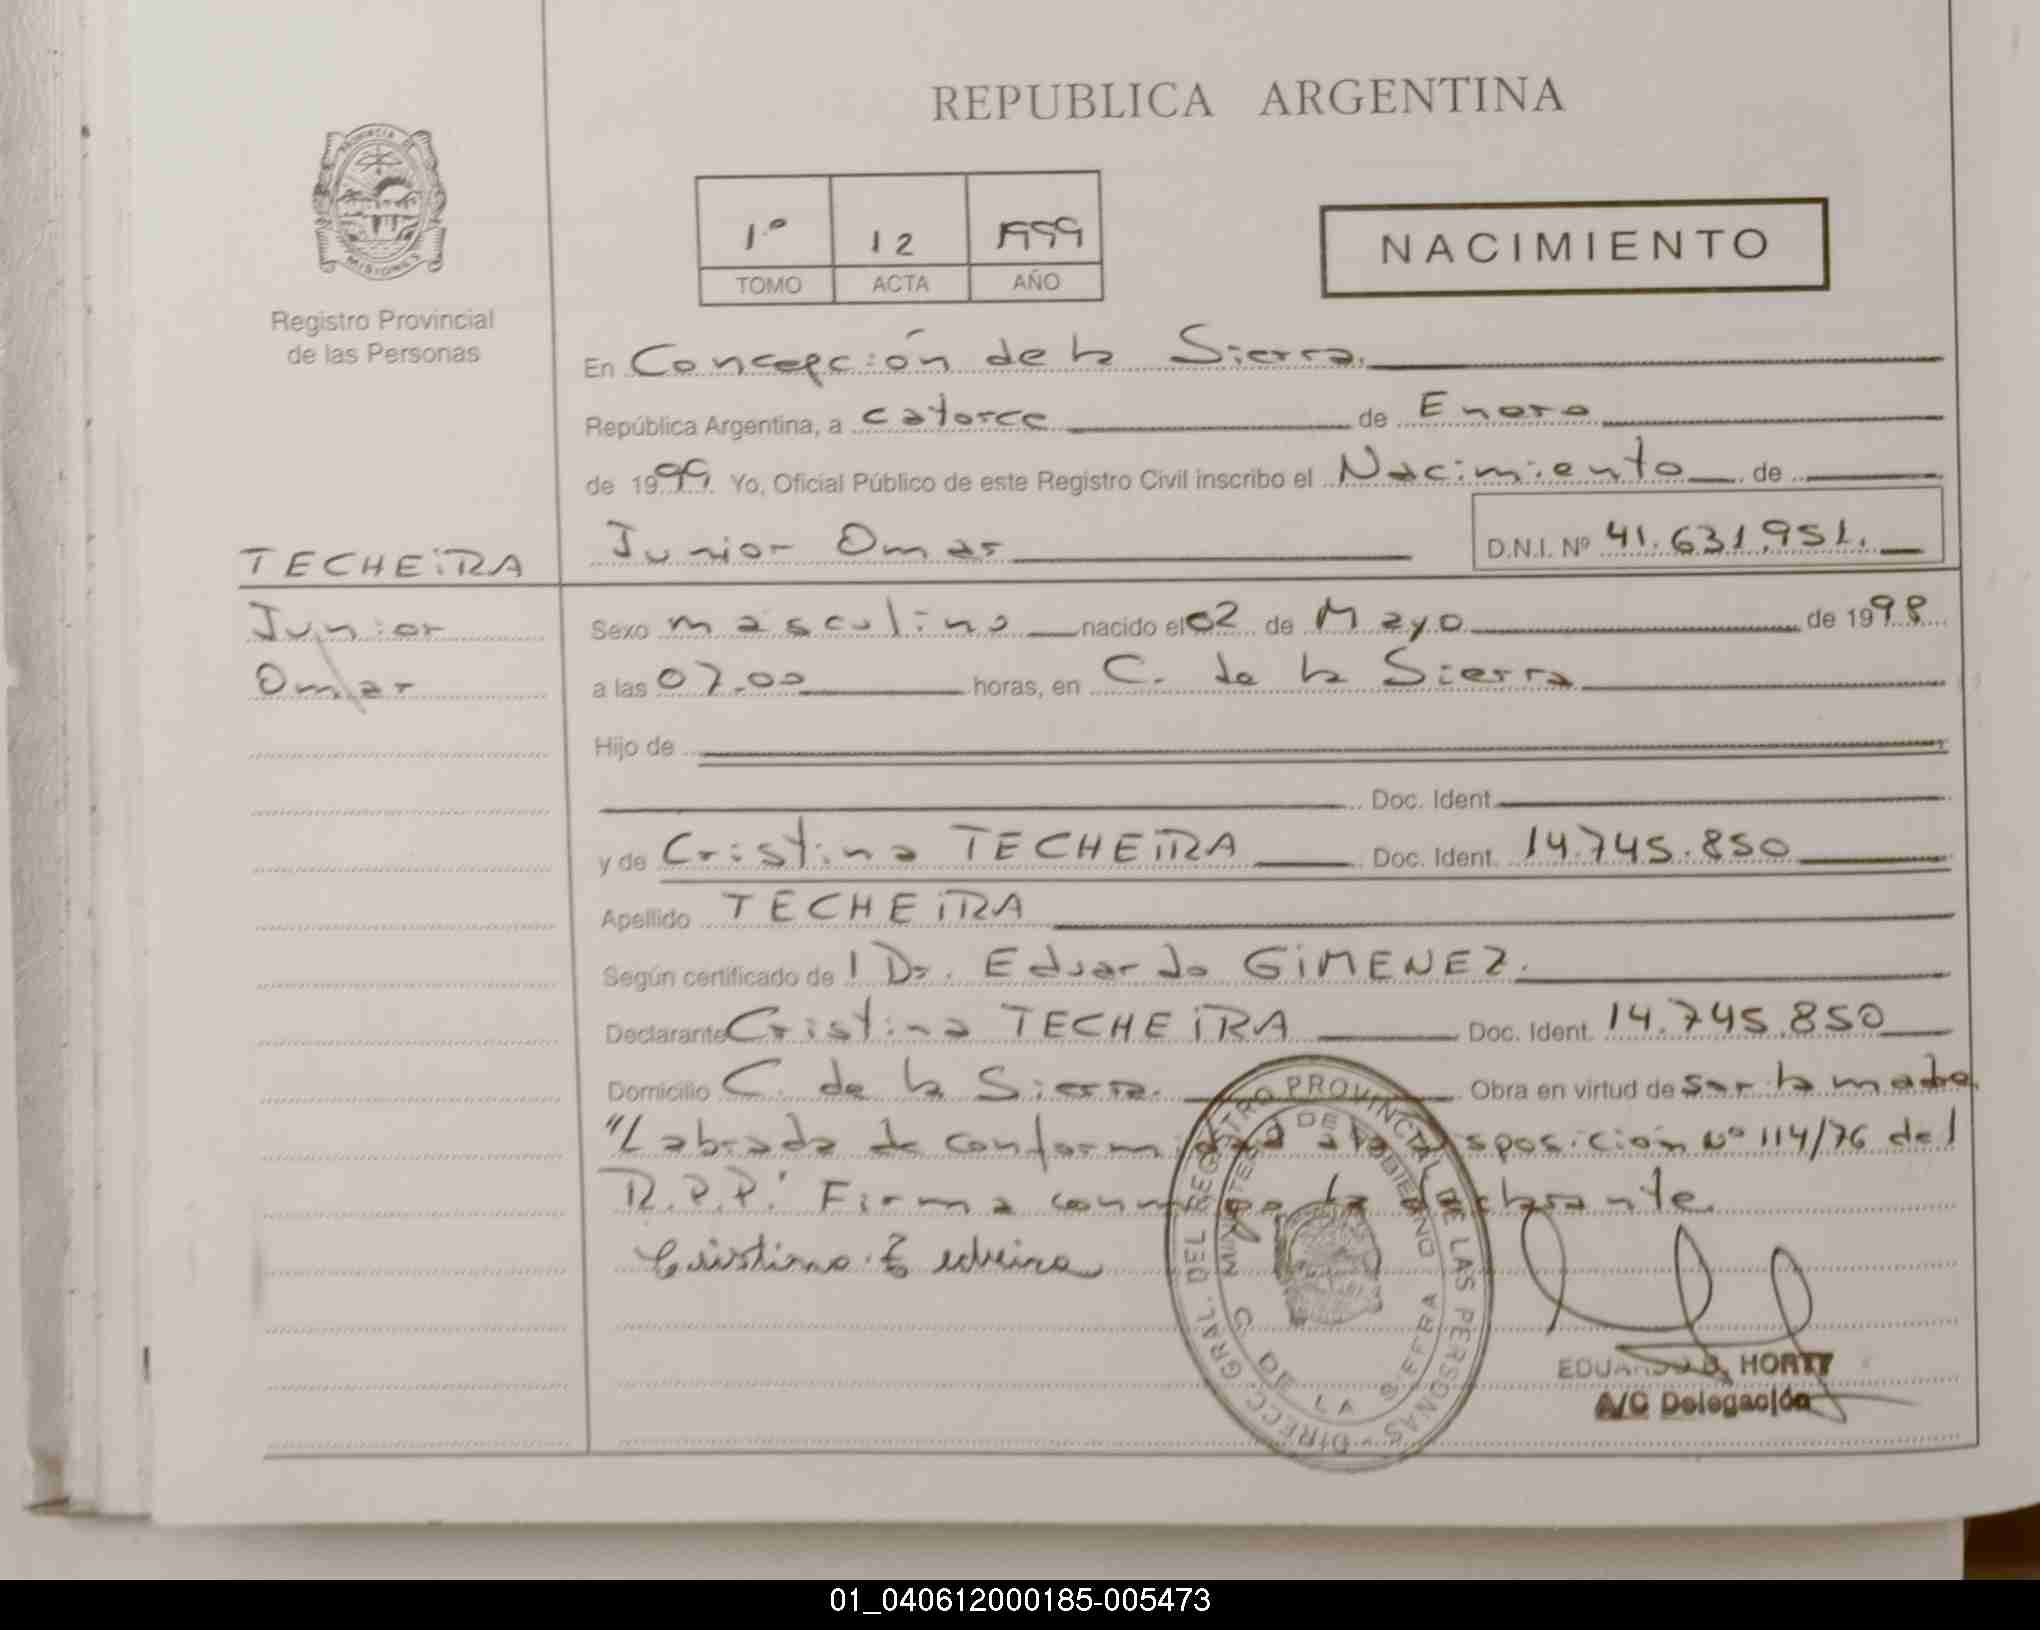 REPUBLICA ARGENTINA
PROVINCIA DE MISIONES
Registro Provincial
de las Personas
1º 12 1999
TOMO ACTA AÑO
NACIMIENTO
En Concepción de la Sierra.
República Argentina, a catorce de Enero
de 1999. Yo, Oficial Público de este Registro Civil inscribo el Nacimiento de
TECHEiRA
Junior Omar D.N.I. Nº 41.631.951.
Junior
Omar
Sexo masculino nacido el 02 de Mayo de 1998
a las 07.00 horas, en C. de la Sierra
Hijo de
Doc. Ident.
y de Cristina TECHEiRA Doc. Ident. 14.745.850
Apellido TECHEiRA
Según certificado de l Dr. Eduardo GiMENEZ.
Declarante Cristina TECHEiRA Doc. Ident. 14.745.850
Domicilio C. de la Sierra. Obra en virtud de ser la madre.
"Labrada de conformidad a la Disposición Nº 114/76 del
R.P.P." Firma conmigo la declarante.
Cristina Techeira
DIRECC. GRAL. DEL REGISTRO PROVINCIAL DE LAS PERSONAS
MINISTERIO DE GOBIERNO
C. DE LA SIERRA
EDUARDO D. HORTT
A/C Delegación
01_040612000185-005473